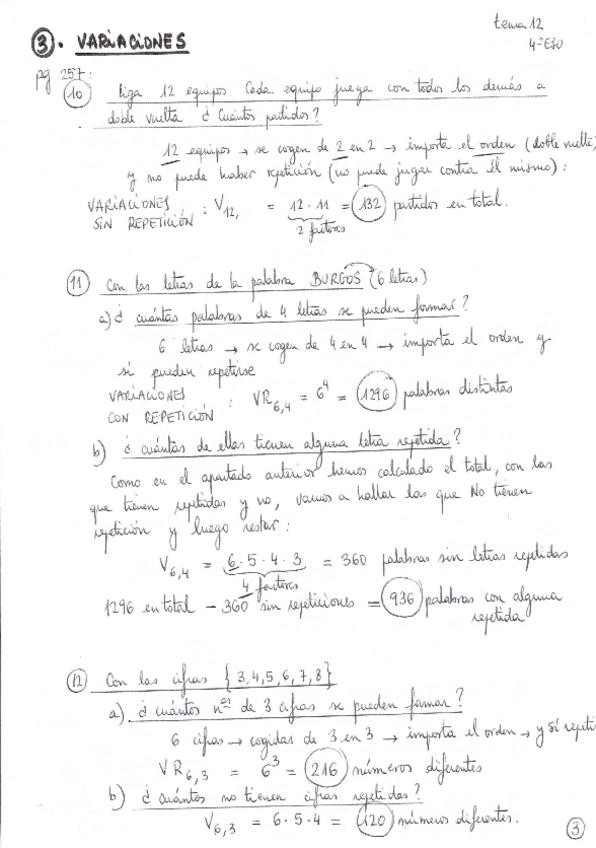 tema 12
4º ESO
③. VARIACIONES
pg 257:
⑩ liga 12 equipos Cada equipo juega con todos los demás a
doble vuelta ¿Cuántos partidos?
12 equipos → se cogen de 2 en 2 → importa el orden (doble vuelta)
y no puede haber repetición (no puede jugar contra él mismo):
VARIACIONES
SIN REPETICIÓN : V12, = 12·11 = 132 partidos en total.
2 factores
⑪ Con las letras de la palabra BURGOS (6 letras)
a) ¿cuántas palabras de 4 letras se pueden formar?
6 letras → se cogen de 4 en 4 → importa el orden y
sí pueden repetirse
VARIACIONES
CON REPETICIÓN : VR6,4 = 6⁴ = 1296 palabras distintas
b) ¿cuántas de ellas tienen alguna letra repetida?
Como en el apartado anterior hemos calculado el total, con las
que tienen repetidas y no, vamos a hallar las que NO tienen
repetición y luego restar:
V6,4 = 6·5·4·3 = 360 palabras sin letras repetidas
4 factores
1296 en total − 360 sin repeticiones = 936 palabras con alguna
repetida
⑫ Con las cifras {3,4,5,6,7,8}
a) ¿cuántos nos de 3 cifras se pueden formar?
6 cifras → cogidas de 3 en 3 → importa el orden → y sí repeti
VR6,3 = 6³ = 216 números diferentes
b) ¿cuántos no tienen cifras repetidas?
V6,3 = 6·5·4 = 120 números diferentes.
③